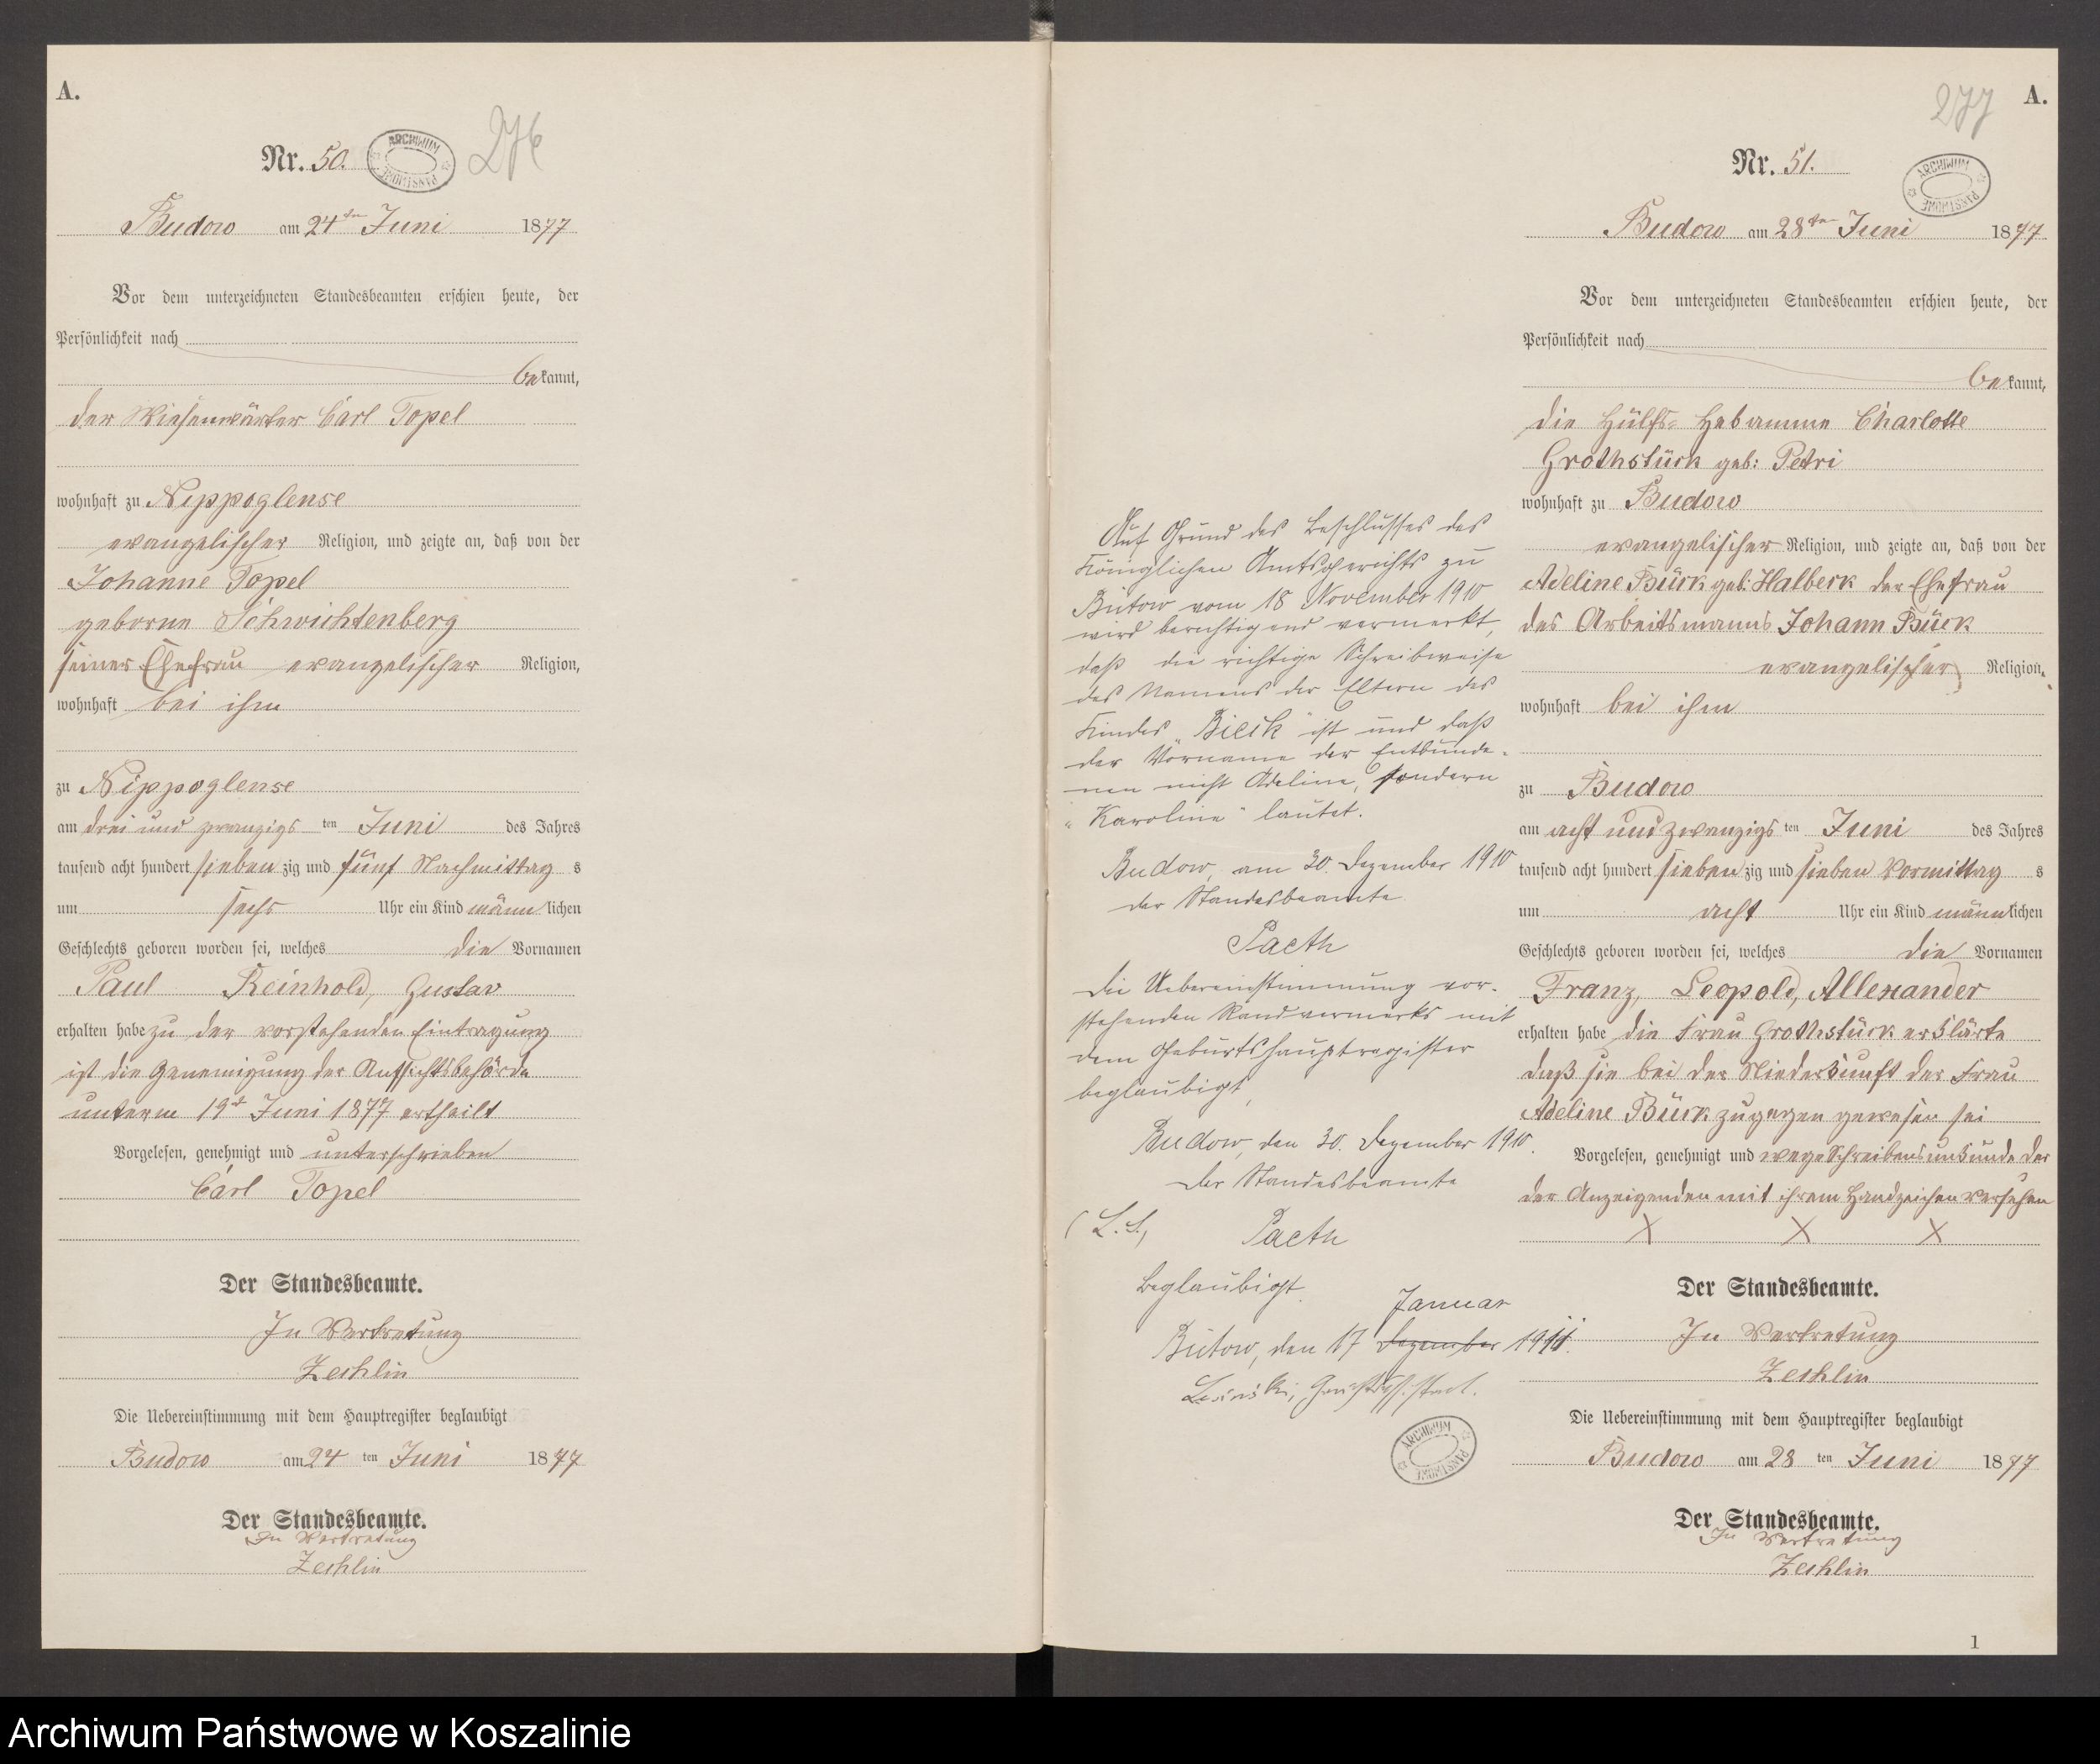 A.
276
Nr. 50.
ARCHIWUM PAŃSTWOWE
Budow am 24ten Juni 1877
Vor dem unterzeichneten Standesbeamten erschien heute, der
Persönlichkeit nach
bekannt,
der Wiesenwärter Carl Topel
wohnhaft zu Nippoglense
evangelischer Religion, und zeigte an, daß von der
Johanne Topel
geborne Schwichtenberg
seiner Ehefrau evangelischer Religion,
wohnhaft bei ihm
zu Nippoglense
am drei und zwanzigs ten Juni des Jahres
tausend acht hundert sieben zig und fünf Nachmittag s
um sechs Uhr ein Kind männ lichen
Geschlechts geboren worden sei, welches die Vornamen
Paul Reinhold, Gustav
erhalten habe zu der vorstehenden Eintragung
ist die Genemigung der Aufsichtsbehörde
unterm 19t Juni 1877 ertheilt
Vorgelesen, genehmigt und unterschrieben
Carl Topel
Der Standesbeamte.
In Vertretung
Zechlin
Die Uebereinstimmung mit dem Hauptregister beglaubigt
Budow am 24 ten Juni 1877
Der Standesbeamte.
In Vertretung
Zechlin
Auf Grund des Beschlusses des
Königlichen Amtsgerichts zu
Bütow vom 18 November 1910
wird berichtigend vermerkt,
daß die richtige Schreibweise
des Namens der Eltern des
Kindes „Bieik" ist und daß
der Vorname der Entbunde-
nen nicht Adeline, sondern
„Karoline" lautet.
Budow, am 30. Dezember 1910
der Standesbeamte
Paeth
Die Uebereinstimmung vor-
stehenden Randvermerks mit
dem Geburtshauptregister
beglaubigt,
Budow, den 30. Dezember 1910.
Der Standesbeamte
(L.S.) Paeth
Beglaubigt.
Januar
Bütow, den 17 Dezember 1911.
ARCHIWUM PAŃSTWOWE
277
A.
Nr. 51.
ARCHIWUM PAŃSTWOWE
Budow am 28ten Juni 1877
Vor dem unterzeichneten Standesbeamten erschien heute, der
Persönlichkeit nach
bekannt,
die Hülfs- Hebamme Charlotte
Grothstück geb: Petri
wohnhaft zu Budow
evangelischer Religion, und zeigte an, daß von der
Adeline Bürk geb: Halberk der Ehefrau
des Arbeitsmanns Johann Bürk
evangelischer Religion,
wohnhaft bei ihm
zu Budow
am acht und zwanzigs ten Juni des Jahres
tausend acht hundert sieben zig und sieben Vormittag s
um acht Uhr ein Kind männ lichen
Geschlechts geboren worden sei, welches die Vornamen
Franz, Leopold, Allexander
erhalten habe die Frau Grothstück erklärte
daß sie bei der Niederkunft der Frau
Adeline Bürk zugegen gewesen sei
Vorgelesen, genehmigt und wege Schreibensunkunde der
der Anzeigenden mit ihrem Handzeichen versehen
X X X
Der Standesbeamte.
In Vertretung
Zechlin
Die Uebereinstimmung mit dem Hauptregister beglaubigt
Budow am 28 ten Juni 1877
Der Standesbeamte.
In Vertretung
Zechlin
1
Archiwum Państwowe w Koszalinie